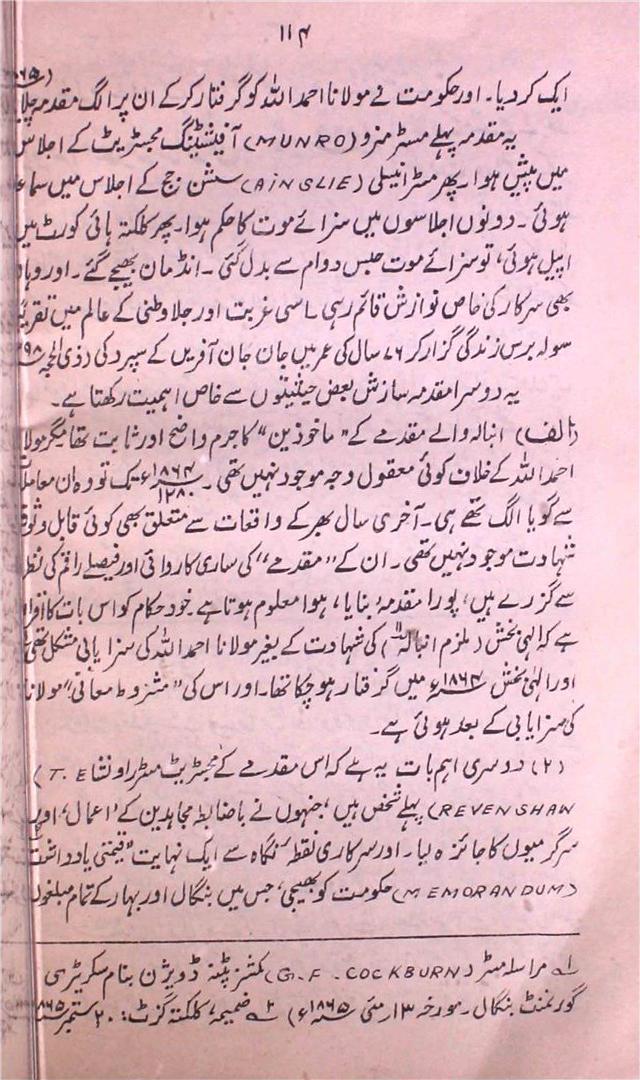 ۱۱۴
ایک کر دیا۔ اور حکومت نے مولانا احمد اللہ کو گرفتار کر کے ان پر الگ مقدمہ چلایا
یہ مقدمہ پہلے مسٹر منرو (MUNRO) آفیشٹنگ مجسٹریٹ کے اجلاس
میں پیش ہوا۔ پھر مسٹر اینسلی (AINSLIE) سشن جج کے اجلاس میں
ہوئی۔ دونوں اجلاسوں میں سزائے موت کا حکم ہوا۔ پھر کلکتہ ہائی کورٹ میں
اپیل ہوئی، تو سزائے موت حبس دوام سے بدل گئی۔ انڈمان بھیجے گئے۔ اور
بھی سرکار کی خاص نوازش قائم رہی۔ اسی غربت اور جلا وطنی کے عالم میں
سولہ برس زندگی گزار کر ۷۶ سال کی عمر میں جان جان آفریں کے سپرد کی (ذی الحجہ
یہ دوسرا مقدمہ سازش بعض حیثیتوں سے خاص اہمیت رکھتا ہے۔
(الف) انبالہ والے مقدمے کے "ماخوذین" کا جرم واضح اور ثابت تھا مگر مولانا
احمد اللہ کے خلاف کوئی معقول وجہ موجود نہیں تھی۔ ۱۸۶۴ء ۱۲۸۰ تک تو وہ ان معاملات
سے گویا الگ تھے ہی۔ آخری سال بھر کے واقعات سے متعلق بھی کوئی قابل وثوق
شہادت موجود نہیں تھی۔ ان کے "مقدمے" کی ساری کاروائی اور فیصلے راقم کی نظر
سے گزرے ہیں، پورا مقدمہ بنایا، ہوا معلوم ہوتا ہے۔ خود حکام کو اس بات کا اقرار
ہے کہ الہٰی بخش (ملزم انبالہ ۱۱) کی شہادت کے بغیر مولانا احمد اللہ کی سزا یابی مشکل تھی
اور الہٰی بخش ۱۸۶۴ء میں گرفتار ہو چکا تھا۔ اور اس کی "مشروط معافی" مولانا
کی سزا یابی کے بعد ہوئی ہے۔
(۲) دوسری اہم بات یہ ہے کہ اس مقدمے کے مجسٹریٹ مسٹر راونشا (T.E
REVENSHAW) پہلے شخص ہیں، جنہوں نے باضابطہ مجاہدین کے 'اعمال' اور
سرگرمیوں کا جائزہ لیا۔ اور سرکاری نقطہ نگاہ سے ایک نہایت "قیمتی یادداشت"
(MEMORANDUM) حکومت کو بھیجی، جس میں بنگال اور بہار کے تمام مبلغوں
۱ے مراسلہ مسٹر (G.F.COCKBURN) کمشنر پٹنہ ڈویژن بنام سکریٹری
گورنمنٹ بنگال۔ مورخہ ۱۳ مئی ۱۸۶۵ء) ۲ے ضمیمہ، کلکتہ گزٹ: ۲۰ ستمبر ۱۸۶۵